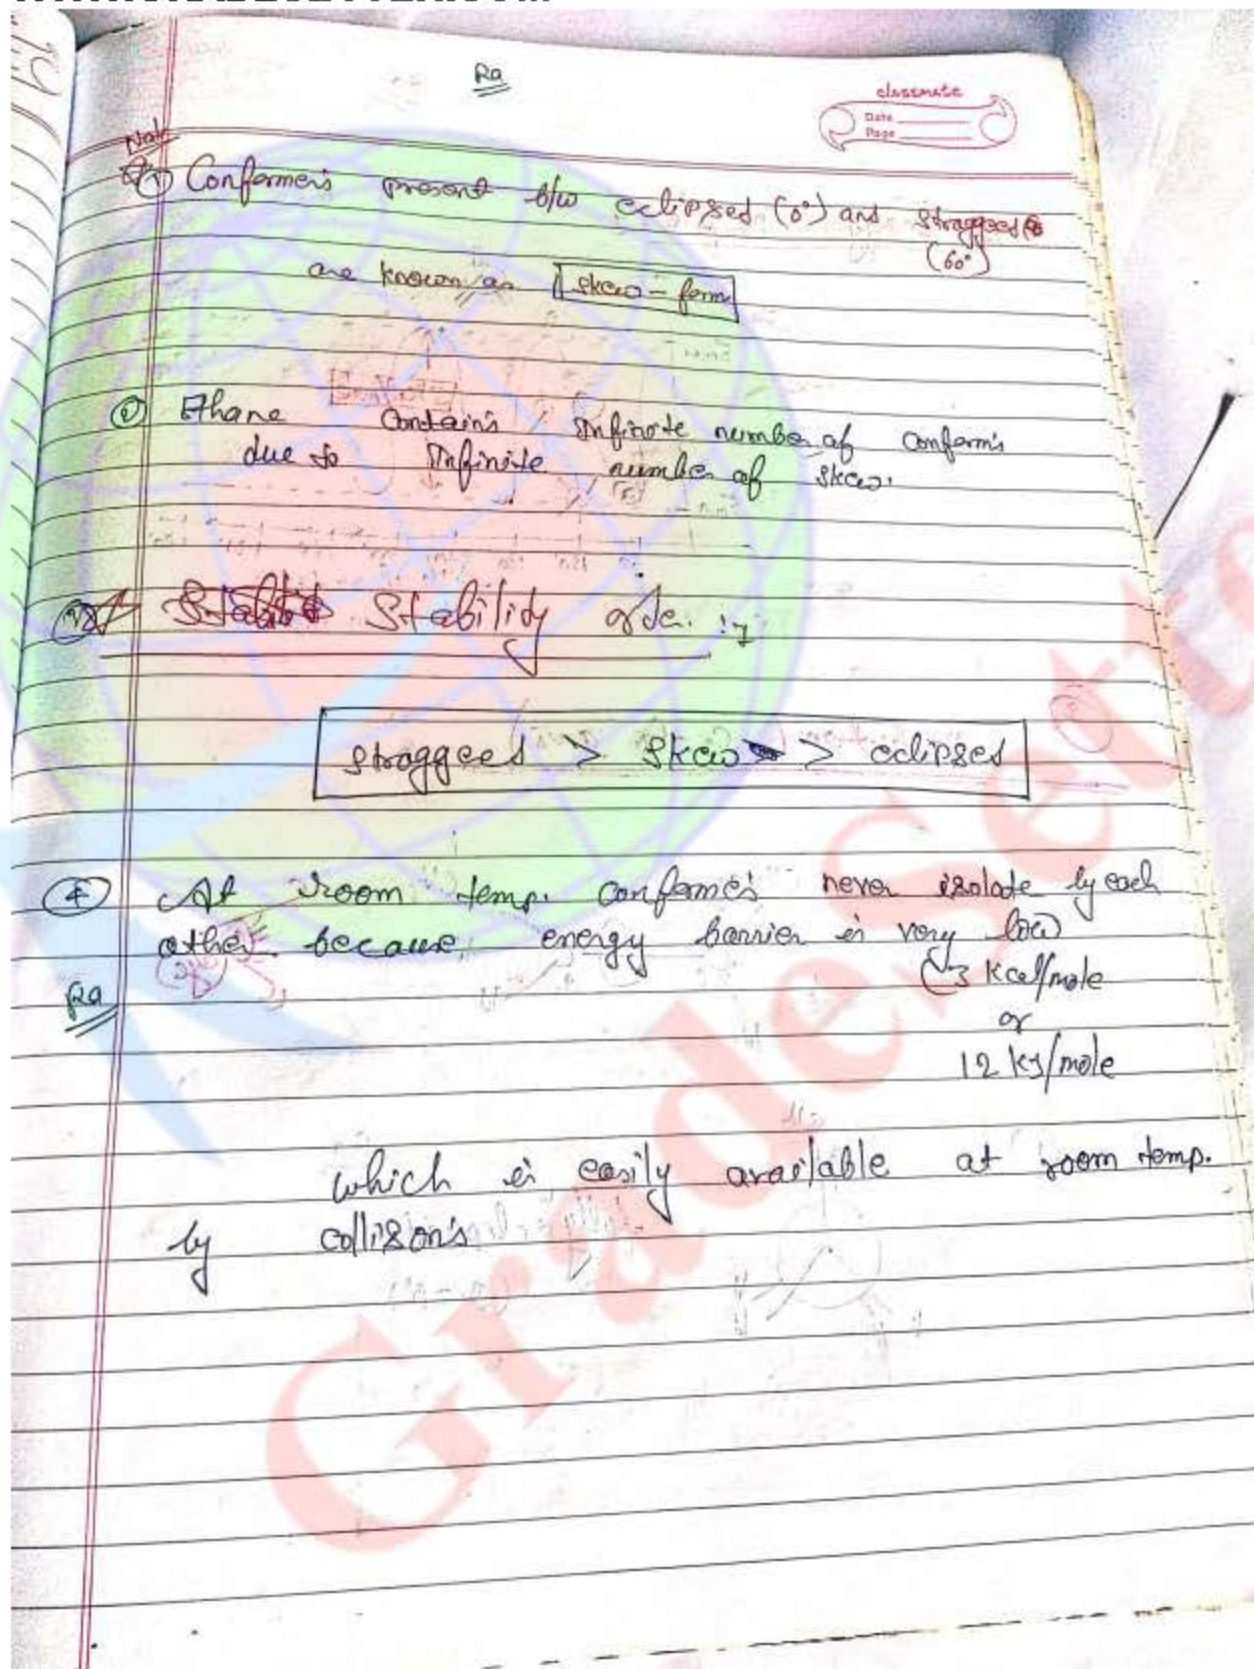 Ra
classmate
Date
Page
Note
① Conformer's present b/w eclipsed (0°) and straggeed
(60°)
are known as skew-form
② Ethane contain's infinite number of conform's
due to infinite number of skew.
Stability order :-
straggeed > skew > eclipsed
④ At room temp. conformer's never isolate by each
other because energy barrier is very low
(3 kcal/mole
or
12 kJ/mole
Ra
which is easily available at room temp.
by collison's
GradeSetter